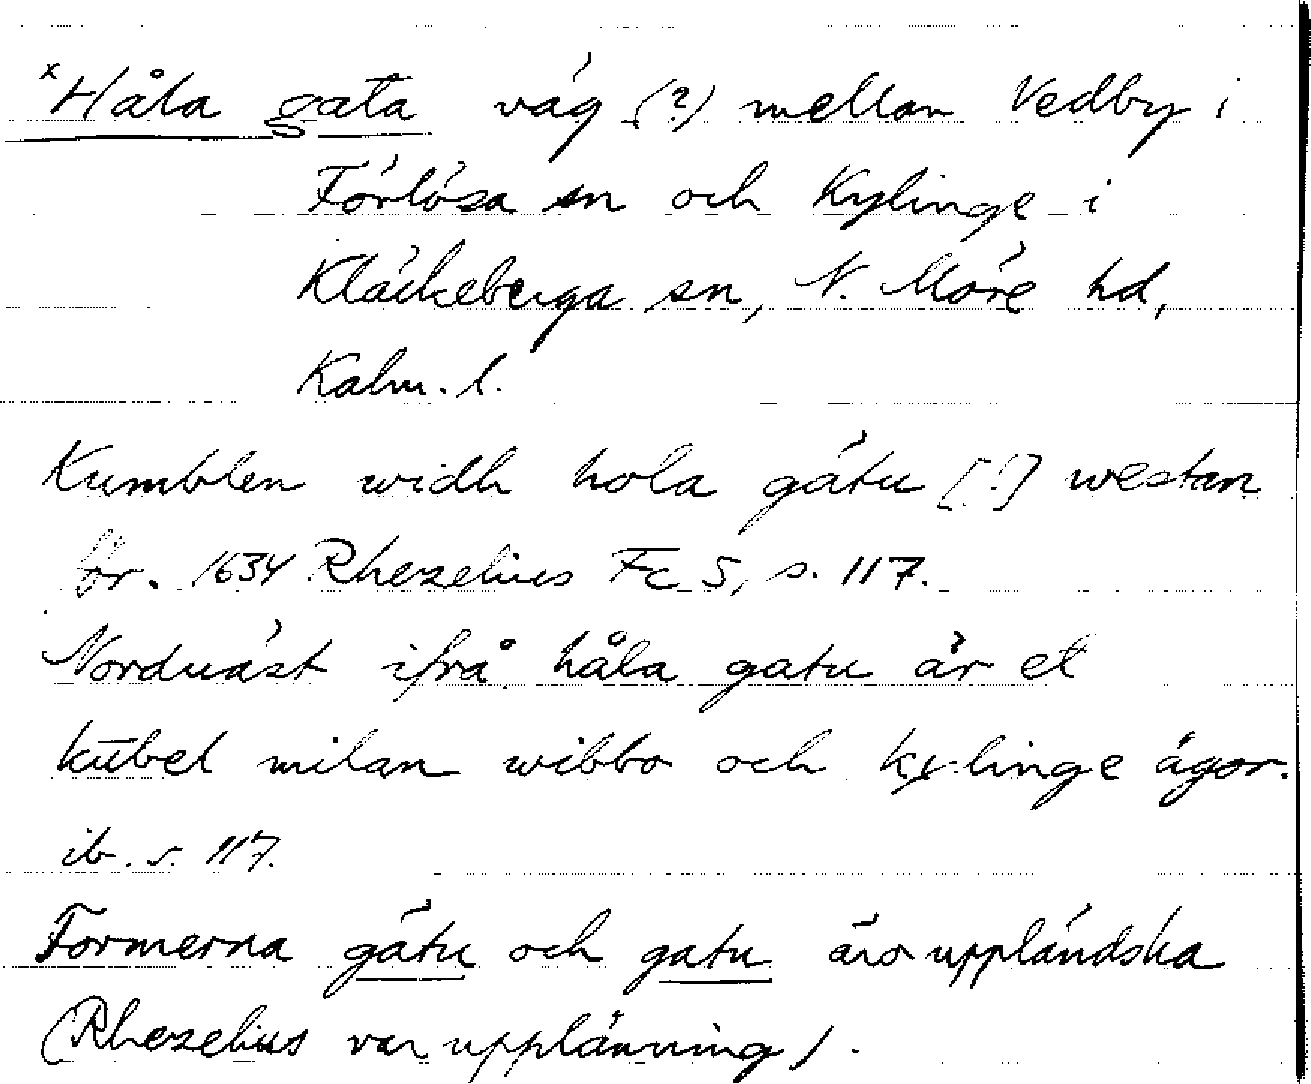 xHåla gata väg (?) mellan Vedby i
Förlösa sn och Kylinge i
Kläckeberga sn, N. Möre hd,
Kalm. l.
Kumblen widh hola gätu [!] westan
för. 1634 Rhezelius Fc 5, s. 117.
Norduäst ifrå håla gatu är et
kūbel milan wibbo och kylinge ägor.
ib. s. 117.
Formerna gätu och gatu äro uppländska
(Rhezelius var upplänning).